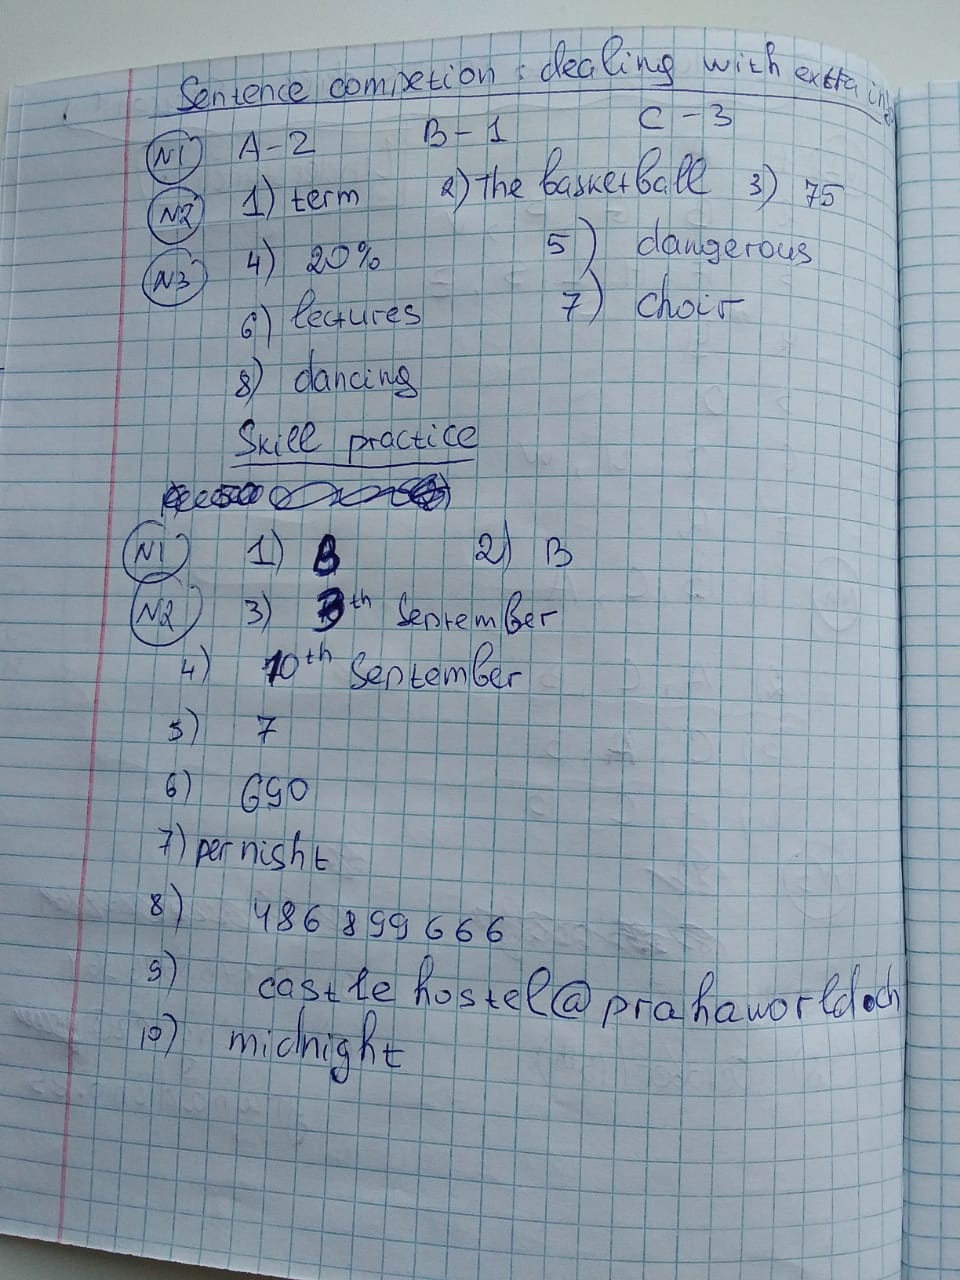 Sentence completion : dealing with extra inf
N1 A-2 B-1 C-3
N2 1) term 2) the basketball 3) 75
N3 4) 20% 5) dangerous
6) lectures 7) choir
8) dancing
Skill practice
N1 1) B 2) B
N2 3) th September
4) 10th September
5) 7
6) 690
7) per night
8) 486 899 666
9) castle hostel@prahaworld.ch
10) midnight